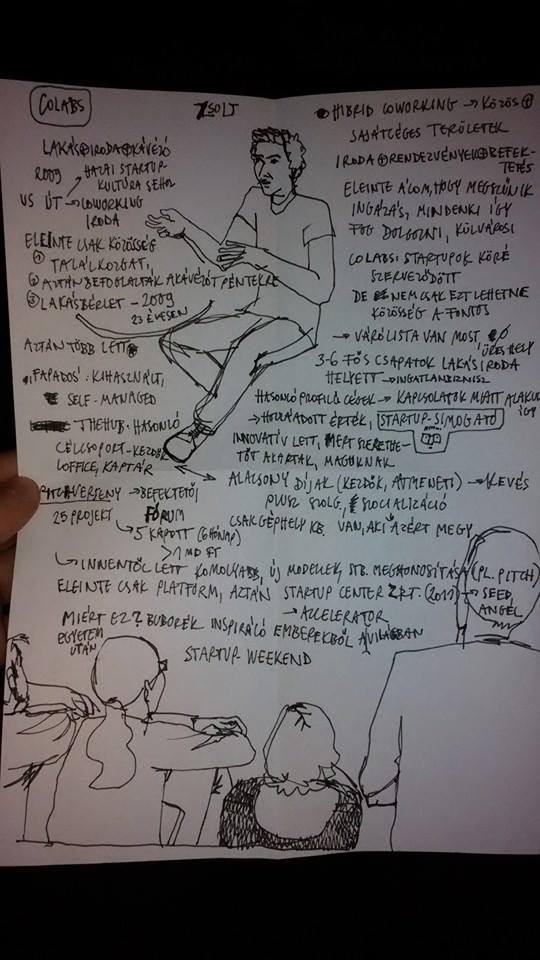 COLABS
ZSOLT
LAKÁS⊕IRODA⊕KÁVÉZÓ
2009 HAZAI STARTUP-
KULTÚRA SEHOL
VS ÚT → COWORKING
IRODA
ELEINTE CSAK KÖZÖSSÉG
① TALÁLKOZGAT,
② AZTÁN BEFOGLALTÁK A KÁVÉZÓT PÉNTEKRE
③ LAKÁSBÉRLET - 2009
23 ÉVESEN
AZTÁN TÖBB LETT
"FAPADOS": KIHASZNÁLT,
SELF-MANAGED
THEHUB: HASONLÓ
CÉLCSOPORT-KEZDŐ,
LOFFICE, KAPTÁR
VERSENY → BEFEKTETŐI
FÓRUM
25 PROJEKT
↳ 5 KAPOTT (6 HÓNAP)
> 1 MD FT
● HIBRID COWORKING → KÖZÖS ⊕
SAJÁT CÉGES TERÜLETEK
IRODA⊕RENDEZVÉNYEK⊕BEFEK-
TETÉS
ELEINTE ÁLOM, HOGY MEGSZŰNIK
INGÁZÁS, MINDENKI ÍGY
FOG DOLGOZNI, KÜLVÁROSI
COLABS: STARTUPOK KÖRÉ
SZERVEZŐDÖTT
DE NEMCSAK EZT LEHETNE
KÖZÖSSÉG A FONTOS
→ VÁRÓLISTA VAN MOST
ÜRES HELY
3-6 FŐS CSAPATOK LAKÁSIRODA
HELYETT → INGATLANBIZNISZ
HASONLÓ PROFILÚ CÉGEK → KAPCSOLATOK MIATT ALAKUL
ÍGY
→ HOZZÁADOTT ÉRTÉK, STARTUP-SIMOGATÓ
INNOVATÍV LETT, MERT SZERETHE-
TŐT AKARTAK, MAGUKNAK
ALACSONY DÍJAK (KEZDŐK, ÁTMENETI) → KEVÉS
PLUSZ SZOLG, SZOCIALIZÁCIÓ
CSAK GÉPHELY KB. VAN, AKI AZÉRT MEGY
↳ INNENTŐL LETT KOMOLYABB, ÚJ MODELLEK, STB. MEGHONOSÍTÁSA (PL. PITCH)
ELEINTE CSAK PLATFORM, AZTÁN STARTUP CENTER ZRT. (2011) → SEED,
ANGEL
→ ACCELERATOR
MIÉRT EZ? BUBORÉK INSPIRÁLÓ EMBEREKBŐL A VILÁGBAN
EGYETEM
UTÁN
STARTUP WEEKEND